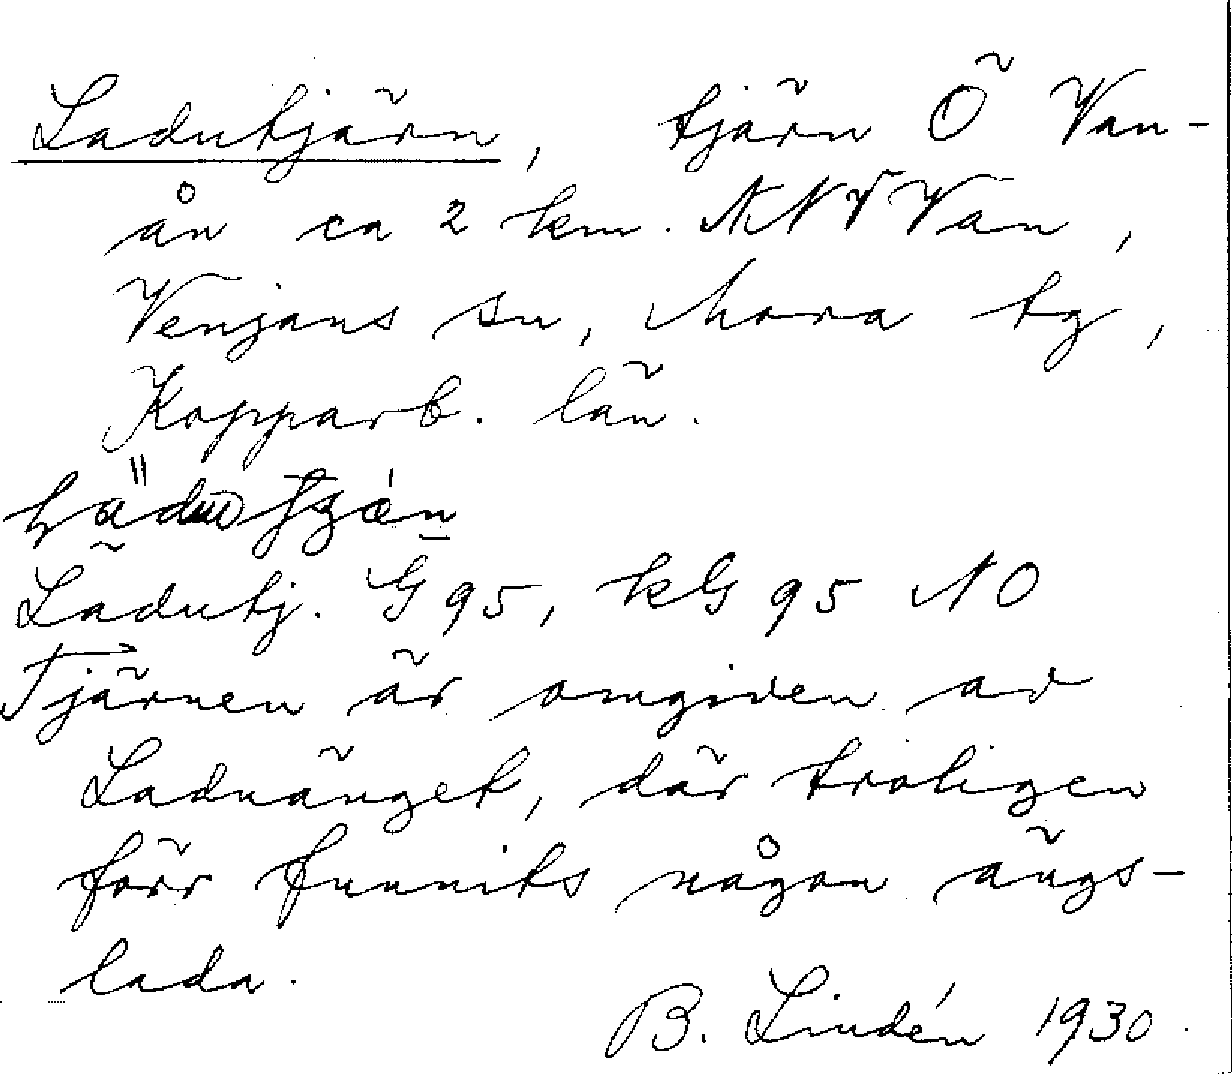 Ladutjärn, tjärn Ö Van-
ån ca 2 km. NNV Van,
Venjans sn, Mora tg,
Kopparb. län.
Ladutj. G 95, kG 95 NO
Tjärnen är omgiven av
Laduänget, där troligen
förr funnits någon ängs-
lada.
B. Lindén 1930.